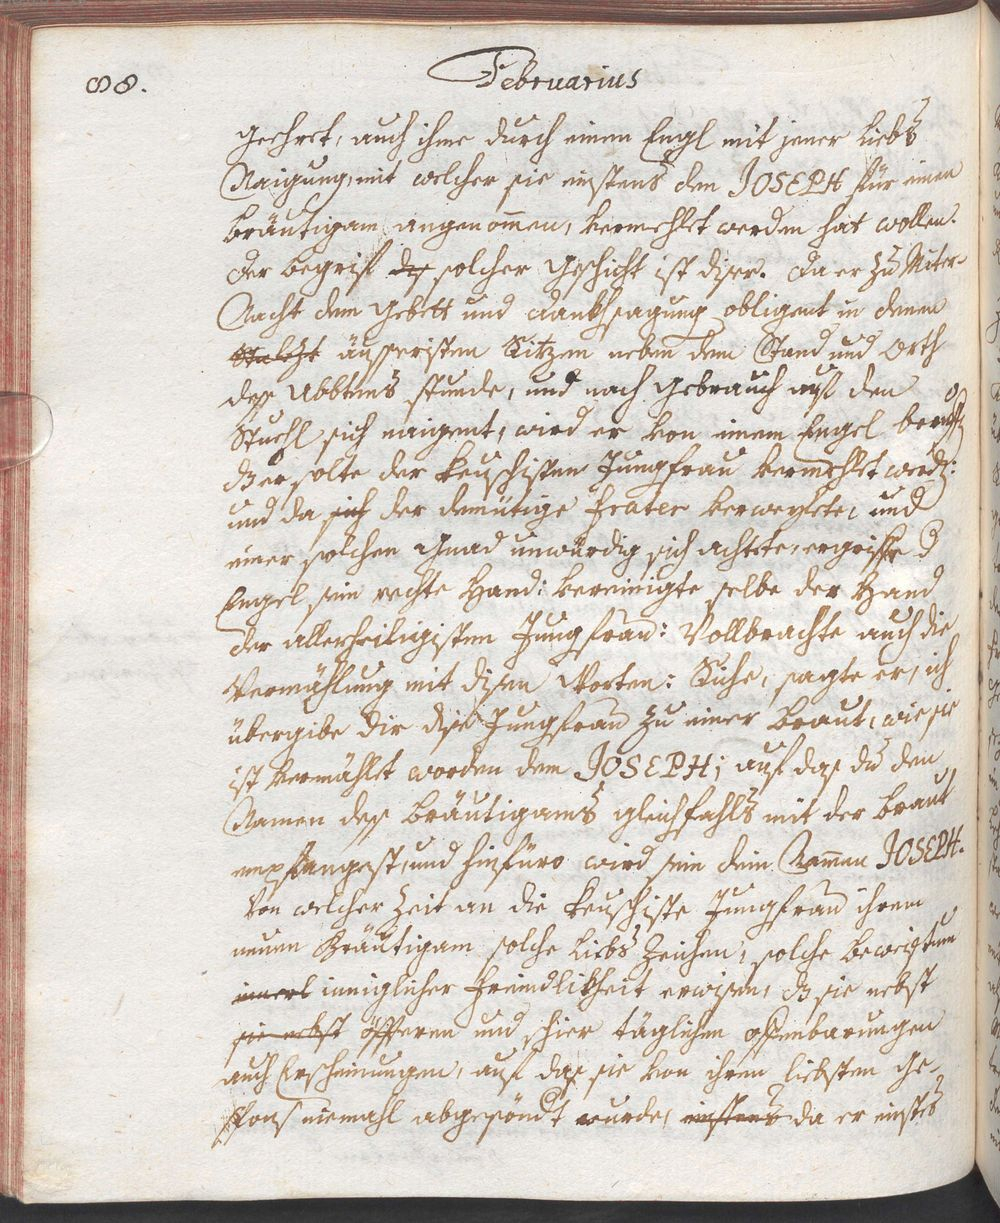 88.
Februarius
geehret, auch ihme durch einen Engl mit jener Liebs
Naigung, mit welcher sie einstens den JOSEPH für einen
Bräutigam angenommen, vermehlet werden hat wollen.
der begrif des solcher geschicht ist diser. da er zu Miter-
Nacht dem gebett und danksagung obligent in denen
äusseristen Sitzen neben dem Stand und Orth
deß Abbtens stunde, und nach gebrauch auß den
Stuehl sich naigent, wird er von einem Engel
er solte der keuschisten Jungfrau vermehlet werd:
und da sich der demütige frater verwaglete, und
einer solchen gnad unwürdig sich achtete, ergriffe d
Engel sein rechte Hand: vereinigte selbe der Hand
der allerheiligisten Jungfrau: Vollbrachte auch die
Vermählung mit disen Worten: Sihe, sagte er, ich
übergibe dir dise Jungfrau zu einer Braut, wie sie
ist vermählet worden dem JOSEPH; auf daß du den
Namen deß Bräutigams gleichfahls mit der Braut
empfangest, und hinfüro wird sein dein Nammen JOSEPH.
Von welcher Zeit an die keuschiste Jungfrau ihrem
neuen Bräutigam solche Liebs Zeichen, solche beweistum
innerl inniglicher freindlikheit erwisen, dz sie nebst
sie nebst öfferen und schier täglichen offenbarungen
auch Erscheinungen, auf daß sie von ihren liebsten Ge-
spons niemahl abgesöndt wurde, einstens da er einstes